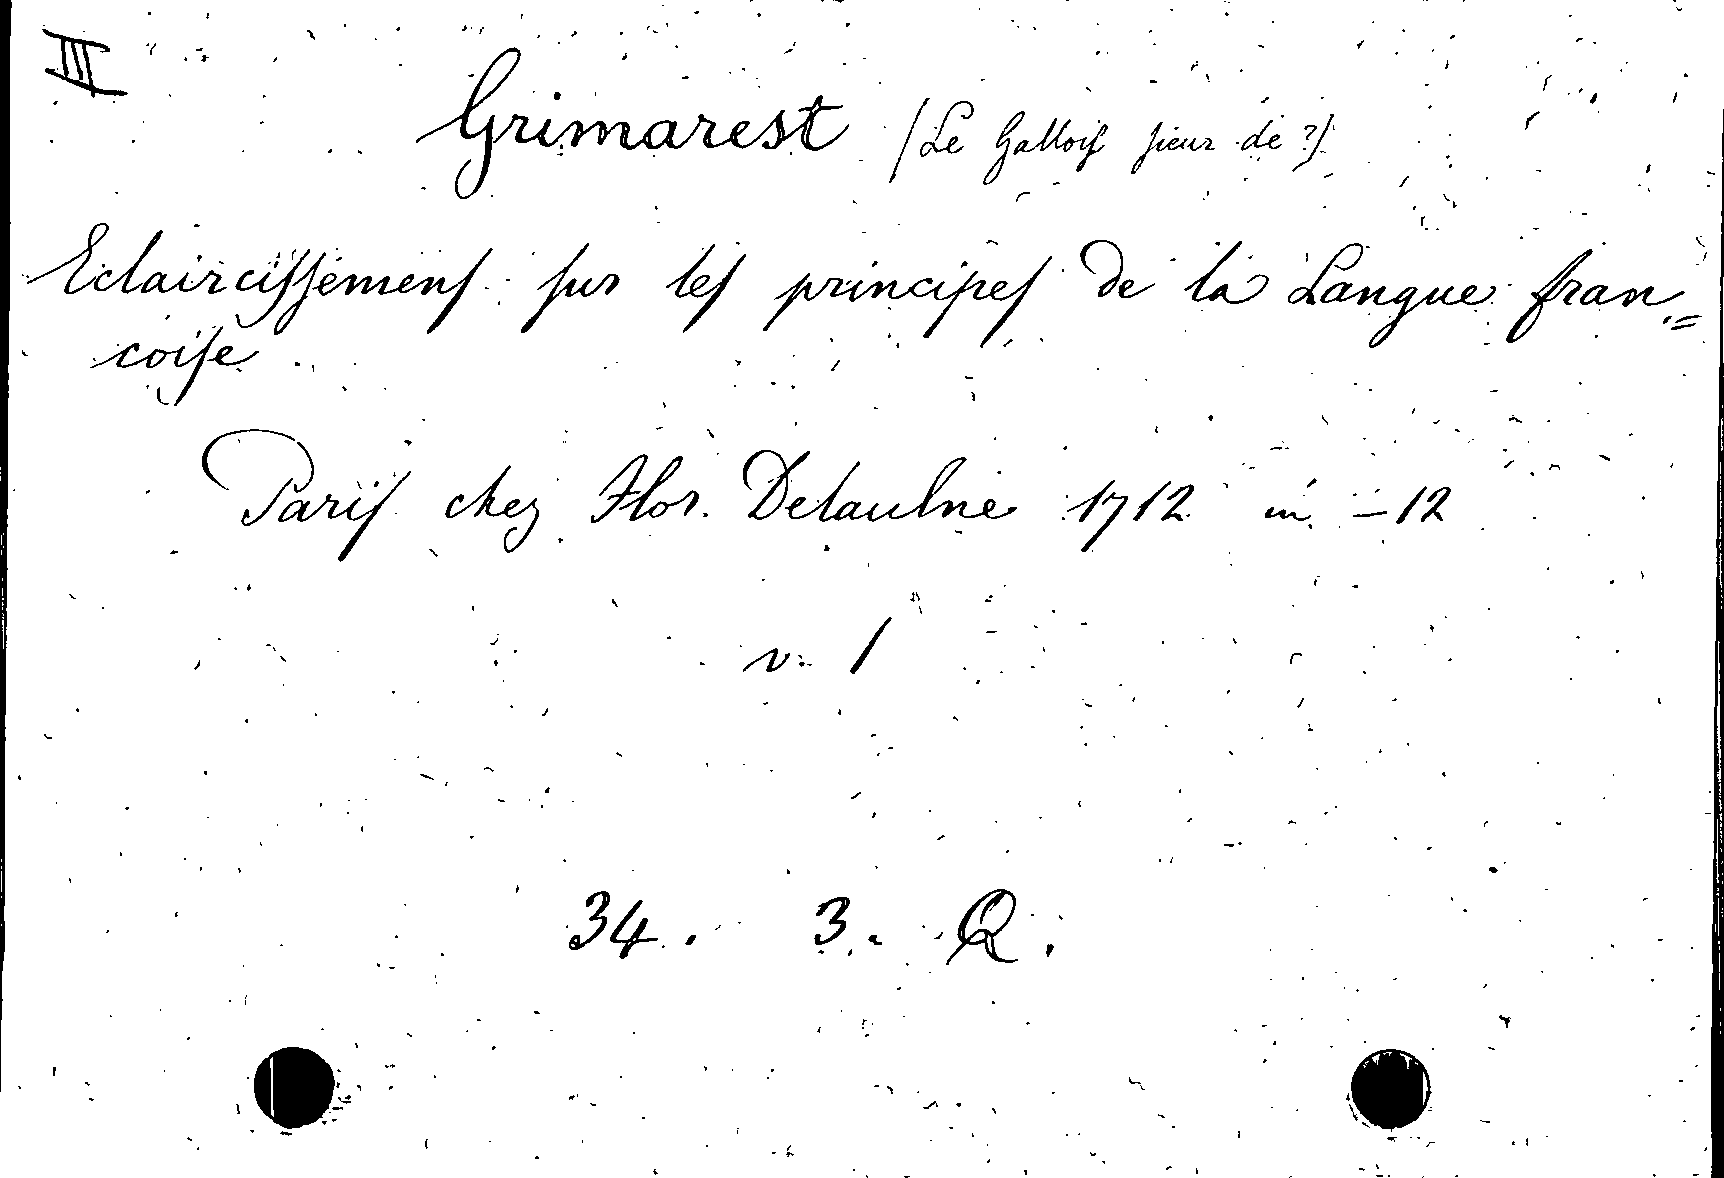 III
Grimarest (Le Gallois sieur de ?)
Eclaircissemens sur les principes de la Langue fran=
coise
Paris chez Flor. Delaulne 1712 in -12
v. 1
34. 3. Q.